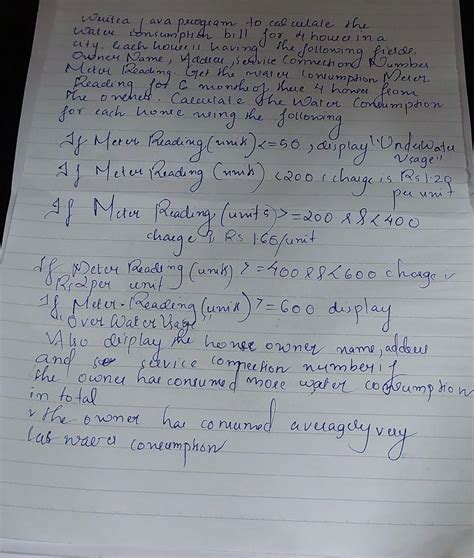 Write a Java program to calculate the
water consumption bill for 4 houses in a
city. Each house is having the following fields.
Owner Name, Address, service connection Number
Meter Reading. Get the water consumption Meter
Reading for 6 months of these 4 houses from
the owners. Calculate the Water Consumption
for each house using the following
If Meter Reading (units) <= 50, display "UnderWater
Usage"
If Meter Reading (units) < 200 charge is Rs 1.20
per unit
If Meter Reading (units) >= 200 && < 400
charge is Rs 1.65/unit
If Meter Reading (units) >= 400 && < 600 charge is
Rs 2 per unit
If Meter-Reading (units) >= 600 display
"Over Water Usage"
Also display the house owner name, address
and service connection number if
the owner has consumed more water consumption
in total
the owner has consumed averagely very
less water consumption